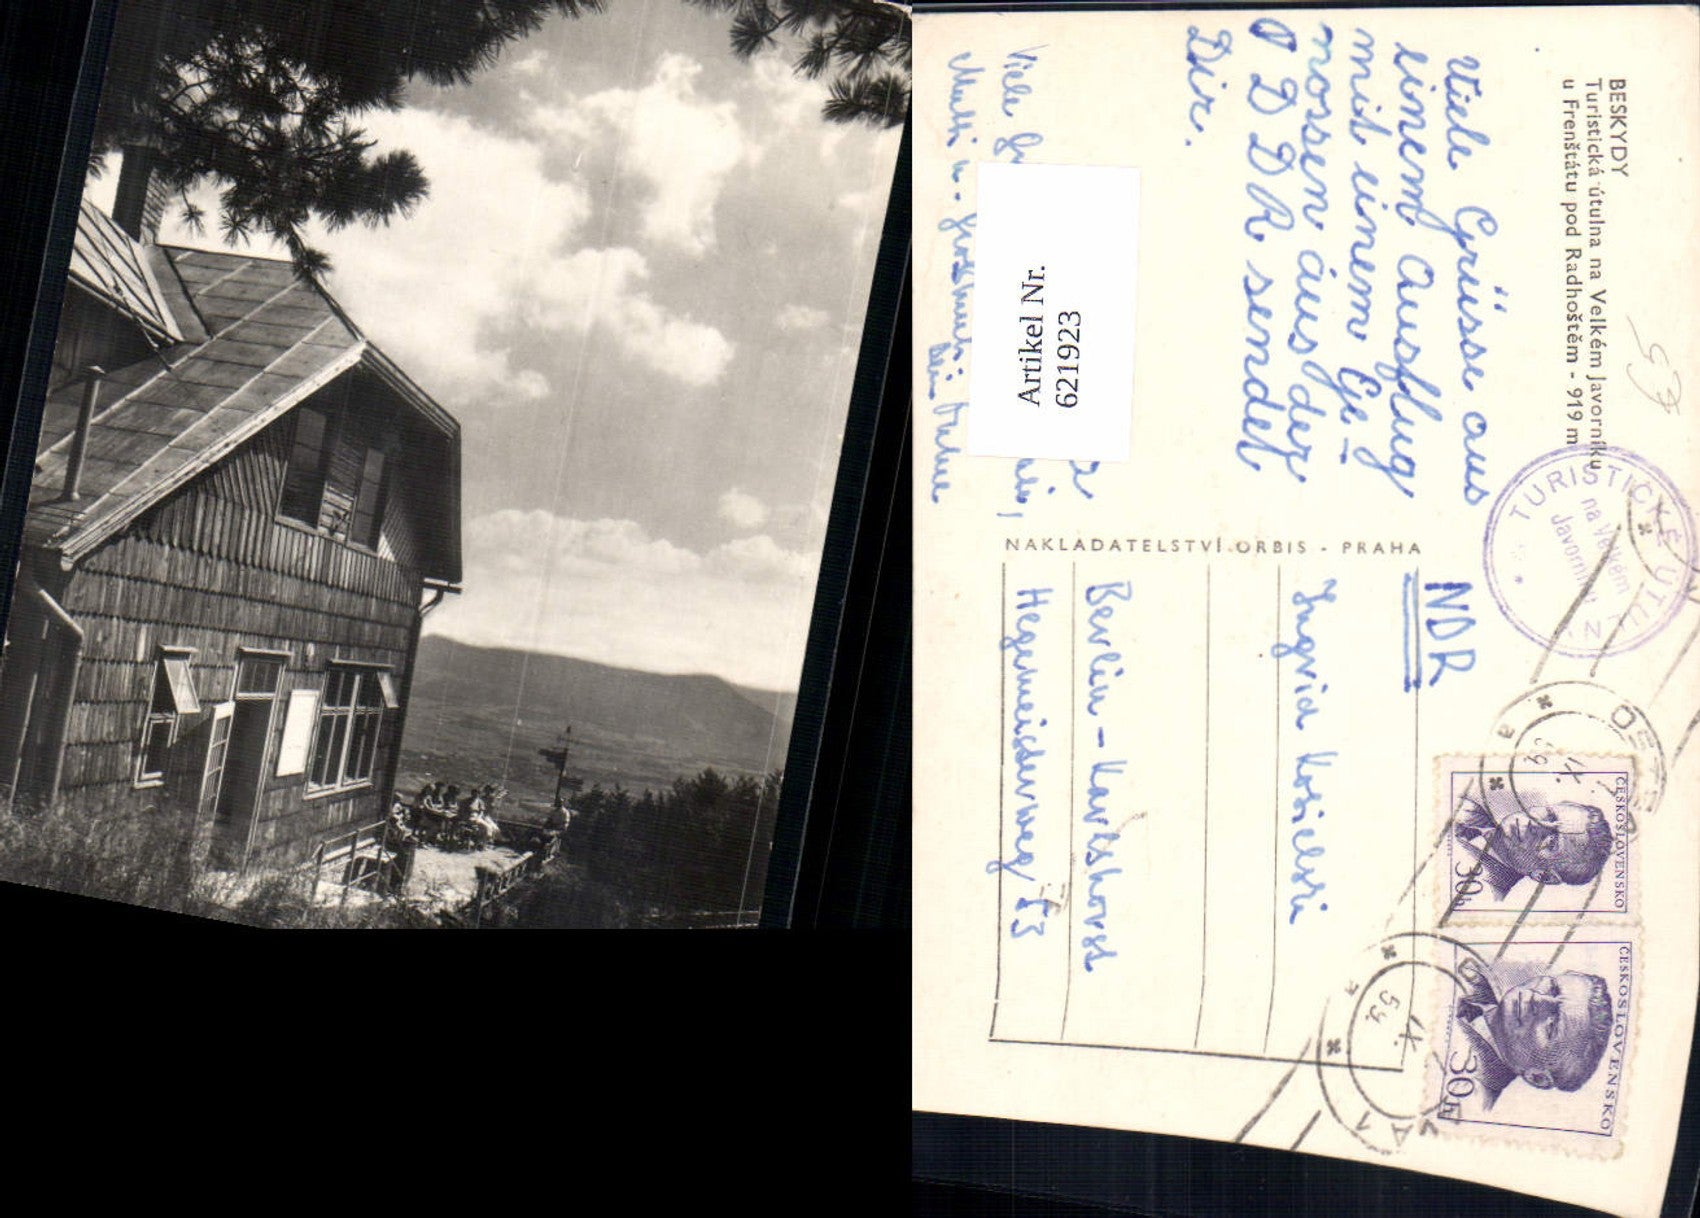 BESKYDY
Turistická útulna na Velkém Javorníku
u Frenštátu pod Radhoštěm - 919 m
Viele Grüsse aus
einem Ausflug
mit einem Ge-
nossen aus der
D D R sendet
Dir.
Viele
Mutti u.
Artikel Nr.
621923
NAKLADATELSTVÍ ORBIS - PRAHA
NDR
Ingrid
Berlin - Karlshorst
Hegemeisterweg
TURISTICKÉ
na Velkém
Javorníku
ČESKOSLOVENSKO
30h
ČESKOSLOVENSKO
30h
IX.
59